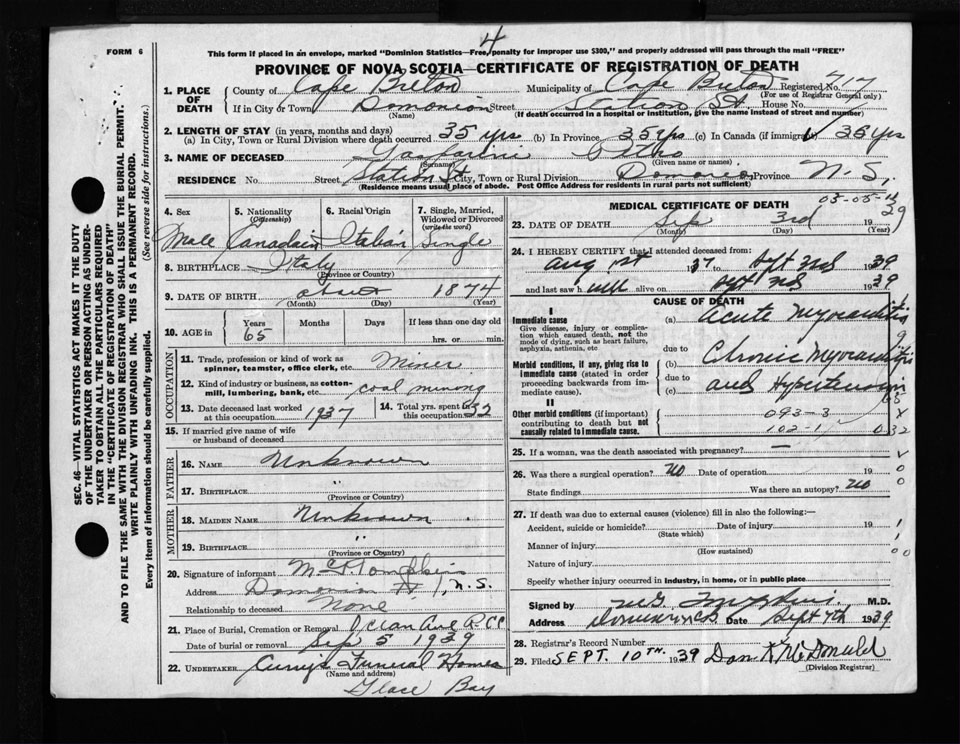 4
FORM 6
This form if placed in an envelope, marked "Dominion Statistics—Free, penalty for improper use $300," and properly addressed will pass through the mail "FREE"
PROVINCE OF NOVA SCOTIA—CERTIFICATE OF REGISTRATION OF DEATH
SEC. 46—VITAL STATISTICS ACT MAKES IT THE DUTY
OF THE UNDERTAKER OR PERSON ACTING AS UNDER-
TAKER TO OBTAIN ALL THE PARTICULARS REQUIRED
IN THE "CERTIFICATE OF REGISTRATION OF DEATH"
AND TO FILE THE SAME WITH THE DIVISION REGISTRAR WHO SHALL ISSUE THE BURIAL PERMIT.
WRITE PLAINLY WITH UNFADING INK. THIS IS A PERMANENT RECORD.
Every item of information should be carefully supplied. (See reverse side for instructions.)
1. PLACE OF DEATH County of Cape Breton Municipality of Cape Breton Registered No. 717
(For use of Registrar General only)
If in City or Town Domonion Street Station St. House No.
(Name) (If death occurred in a hospital or institution, give the name instead of street and number)
2. LENGTH OF STAY (in years, months and days)
(a) In City, Town or Rural Division where death occurred 35 yrs (b) In Province 35 yrs (c) In Canada (if immigrant) 35 yrs
3. NAME OF DECEASED
(Surname) (Given name or names)
RESIDENCE No. Street Station St City, Town or Rural Division Domonion Province N.S.
(Residence means usual place of abode. Post Office Address for residents in rural parts not sufficient)
4. Sex 5. Nationality (Citizenship) 6. Racial Origin 7. Single, Married, Widowed or Divorced (write the word)
Male Canadain Italian Single
8. BIRTHPLACE Italy
(Province or Country)
9. DATE OF BIRTH about 1874
(Month) (Day) (Year)
10. AGE in Years Months Days If less than one day old
65 hrs. or min.
OCCUPATION
11. Trade, profession or kind of work as spinner, teamster, office clerk, etc. Miner
12. Kind of industry or business, as cotton-mill, lumbering, bank, etc. coal mining
13. Date deceased last worked at this occupation 1937 14. Total yrs. spent in this occupation 32
15. If married give name of wife or husband of deceased
FATHER
16. NAME Unknown
17. BIRTHPLACE "
(Province or Country)
MOTHER
18. MAIDEN NAME Unknown
19. BIRTHPLACE "
(Province or Country)
20. Signature of informant
Address Dominion N.S.
Relationship to deceased None
21. Place of Burial, Cremation or Removal
Date of burial or removal Sep 5 1939
22. UNDERTAKER Curry's Funeral Homes
(Name and address)
Glace Bay
MEDICAL CERTIFICATE OF DEATH
23. DATE OF DEATH Sep 3rd 19
(Month) (Day) (Year)
24. I HEREBY CERTIFY that I attended deceased from:
Aug 1st 1937 to Sept 3rd 1939
and last saw him alive on Sept 3rd 1939
CAUSE OF DEATH
I
Immediate cause
Give disease, injury or complication which caused death, not the mode of dying, such as heart failure, asphyxia, asthenia, etc
(a) Acute Myocarditis
due to
Morbid conditions, if any, giving rise to immediate cause (stated in order proceeding backwards from immediate cause).
(b) Chronic Myocarditis
due to
(c) and Hypertension
II
Other morbid conditions (if important) contributing to death but not causally related to immediate cause.
093-3
102-1
032
25. If a woman, was the death associated with pregnancy? —
26. Was there a surgical operation? No Date of operation 19
State findings Was there an autopsy? No
27. If death was due to external causes (violence) fill in also the following:—
Accident, suicide or homicide? Date of injury 19
(State which)
Manner of injury
(How sustained)
Nature of injury
Specify whether injury occurred in industry, in home, or in public place
Signed by M.D.
Address Dominion CB Date Sept 7th 1939
28. Registrar's Record Number
29. Filed SEPT. 10TH. 1939 Dan K. McDonald
(Division Registrar)